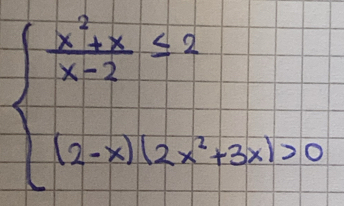 { (x² + x)/(x - 2) ≤ 2
(2 - x)(2x² + 3x) > 0